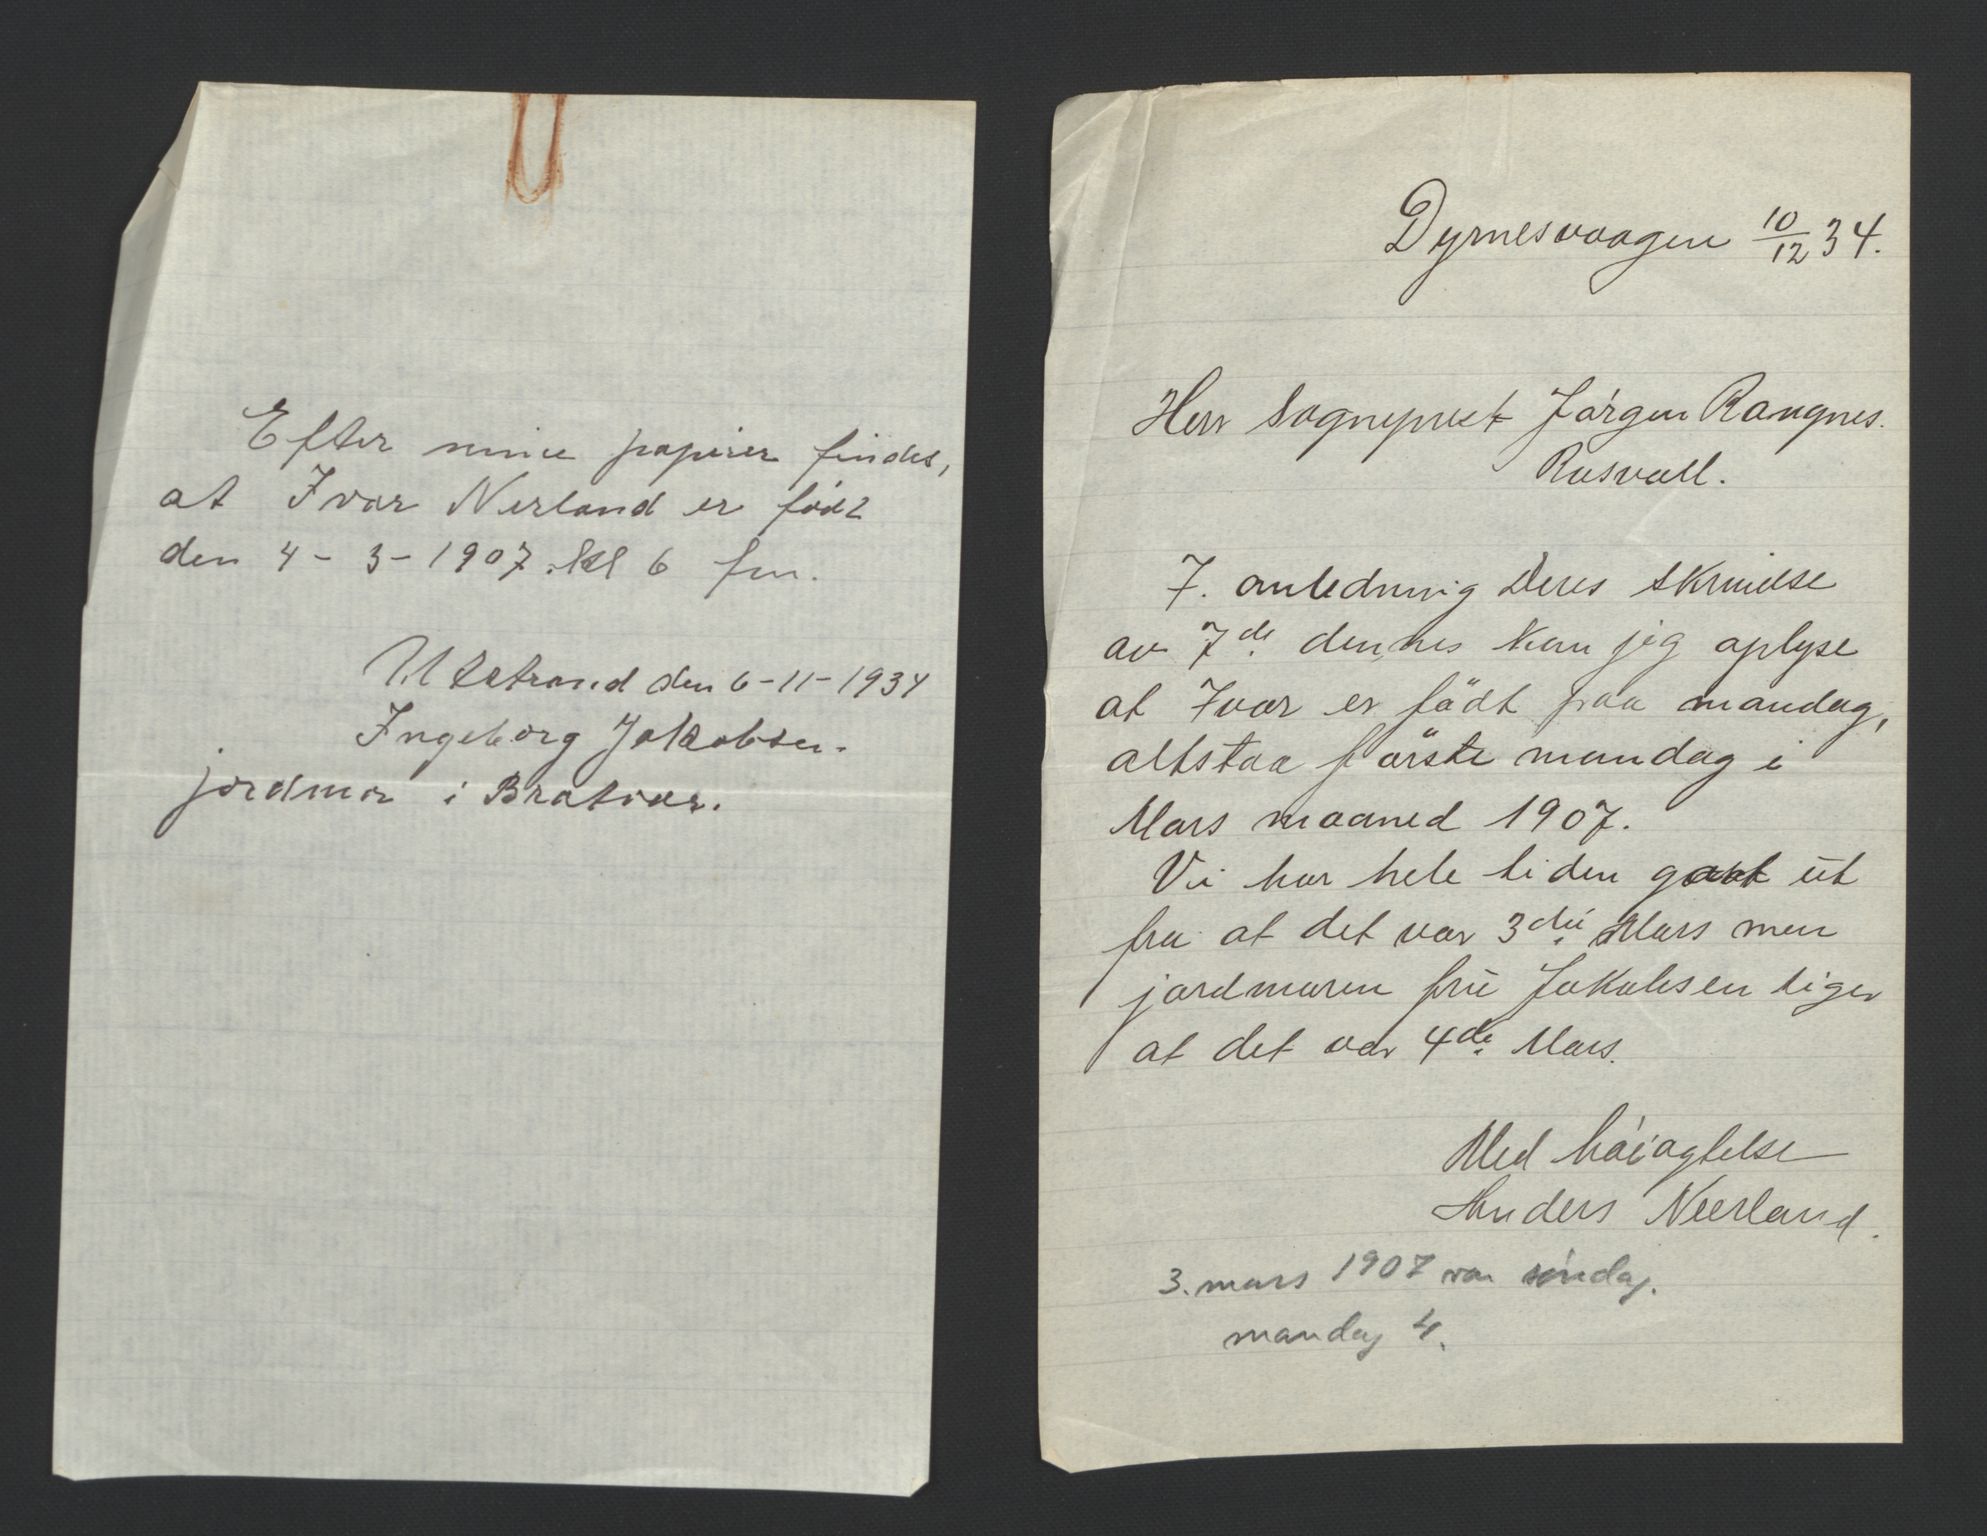 Efter mine papirer findes,
at Ivar Nerland er född
den 4-3-1907. kl 6 fm.
Utstrand den 6-11-1934
Ingeborg Jakobsen.
jordmor i Brattvær.
Dyrnesvaagen 10/12 34.
Herr Sogneprest Jörgen Rangnes.
Rosvoll.
I. anledning Deres skrivelse
av 7de. dennes kan jeg oplyse
at Ivar er födt paa mandag,
altsaa förste mandag i
Mars maaned 1907.
Vi har hele tiden gaat ut
fra at det var 3die Mars men
jordmoren fru Jakobsen siger
at det var 4de Mars.
Med höiagtelse
Anders Neerland.
3. mars 1907 var söndag.
mandag 4.